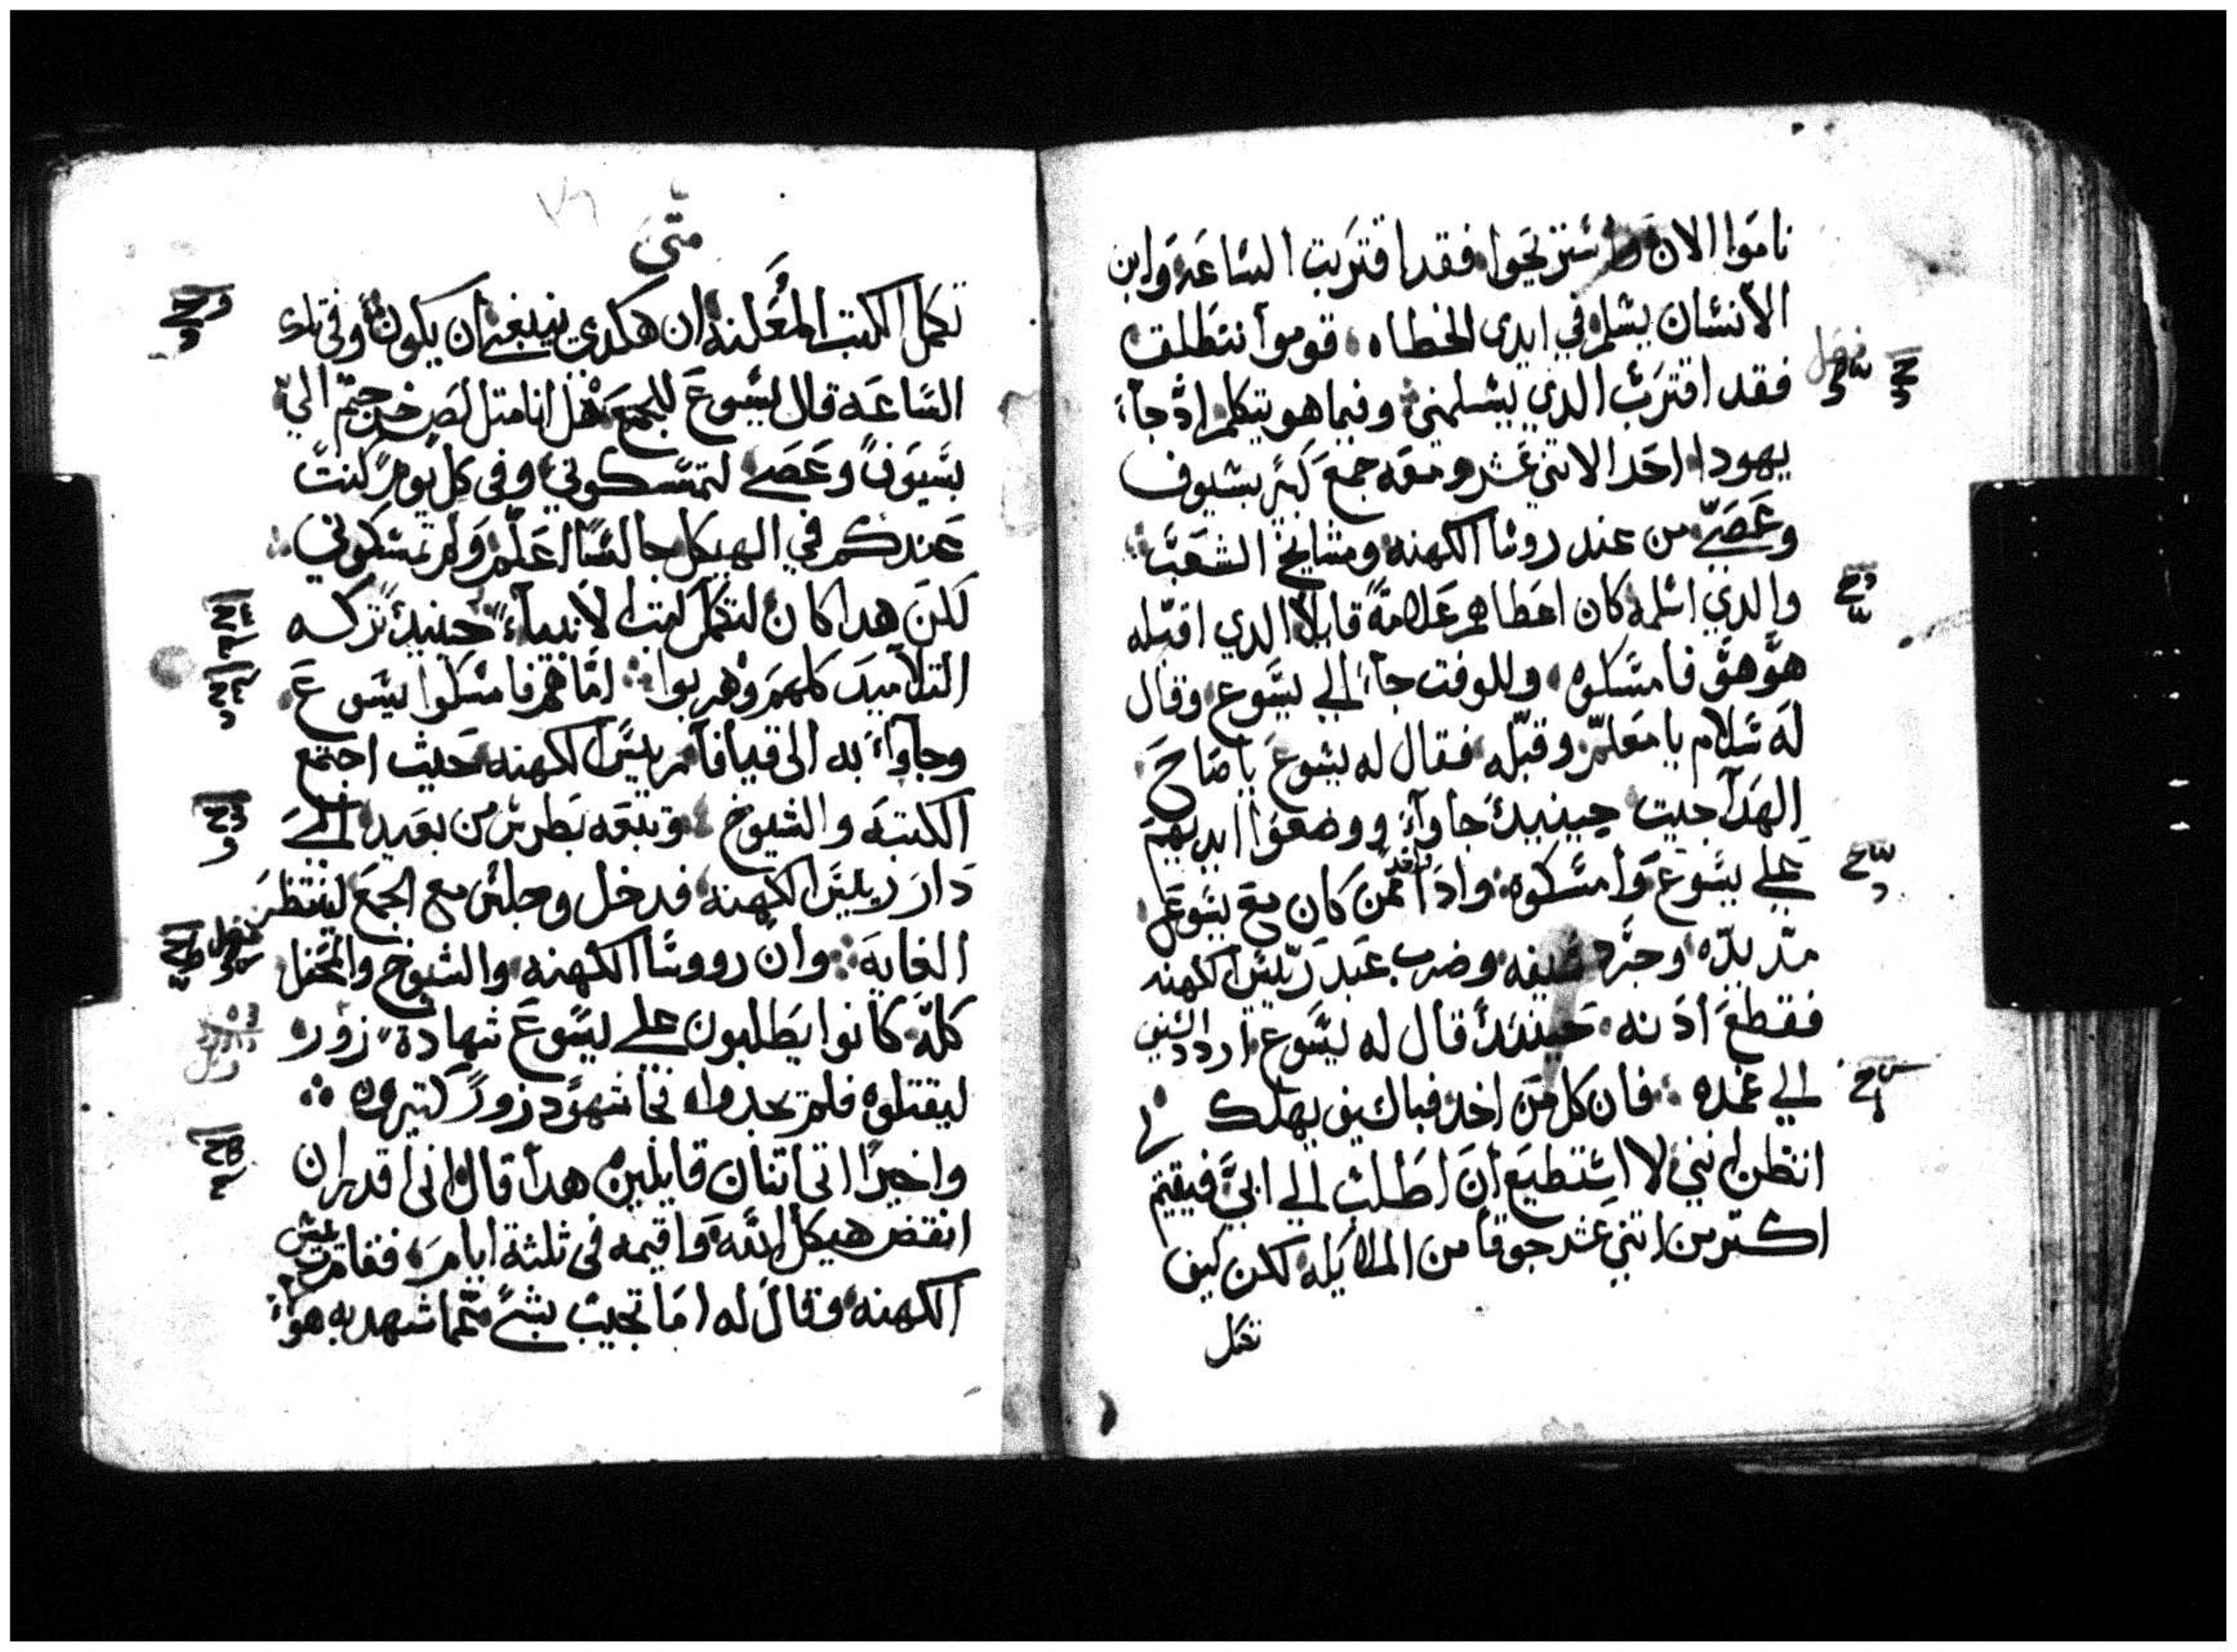 ناموا الان واستريحوا فقد اقتربت الساعه وابن
الانسان يسلم في ايدى الخطاه قوموا ننطلق
فقد اقترب الدي يسلمني وفيما هو يتكلم اذ جآء
يهودا احد الاتني عشر ومعه جمع كتير بسيوف
وعصي من عند روسا الكهنه ومشايخ الشعب
والدي اسلمه كان اعطاهم علامة قايلا الدي اقبله
هو هو فامسكوه وللوقت جآء الي يسوع وقال
له سلام يا معلم وقبله فقال له يسوع يا صاح
الهدا جيت حينيد جاوآ ووضعوا ايديهم
علي يسوع وامسكوه وادا واحد ممن كان مع يسوع
مد يده وجرد سيفه وضرب عبد ريس الكهنه
فقطع ادنه حينيد قال له يسوع اردد السيف
الي غمده فان كل من اخد فبالسيف يهلك
اتظن انني لا استطيع ان اطلب الي ابي فيقيم
اكتر من اتني عشر جوقا من الملايكه لكن كيف
تكمل
متى
تكمل الكتب المعلنه ان هكدي ينبغي ان يكون وفي تلك
الساعه قال يسوع للجمع هل انا متل لص خرجتم الي
بسيوف وعصي لتمسكوني وفي كل يوم كنت
عندكم في الهيكل جالسا اعلم ولم تمسكوني
لكن هدا كان لتكمل كتب الانبيآء حينيد تركه
التلاميد كلهم وهربوا اما هم فامسكوا يسوع
وجاوآ به الى قيافا ريس الكهنه حيث اجتمع
الكتبه والشيوخ وتبعه بطرس من بعيد الي
دار ريس الكهنه فدخل وجلس مع الجمع لينتظر
الغايه وان رووسا الكهنه والشيوخ والمحفل
كله كانوا يطلبون علي يسوع شهادة زور
ليقتلوه فلم يجدوا فجا شهود زور كتيره
واخيرا اتى اتنان قايلين هدا قال اني اقدر ان
انقض هيكل الله واقيمه في ثلثة ايام فقام ريس
الكهنه وقال له اما تجيب بشي مما شهد به هو